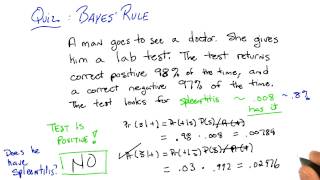 Quiz: Bayes' Rule
A man goes to see a doctor. She gives
him a lab test. The test returns
correct positive 98% of the time, and
a correct negative 97% of the time.
The test looks for spleentitis ~ .008 ~ .8%
has it
Test is
positive!
Does he
have
spleentitis?
NO
Pr(s|+) = Pr(+|s) P(s)
= .98 · .008 = .00784
= .03 · .992 = .02976